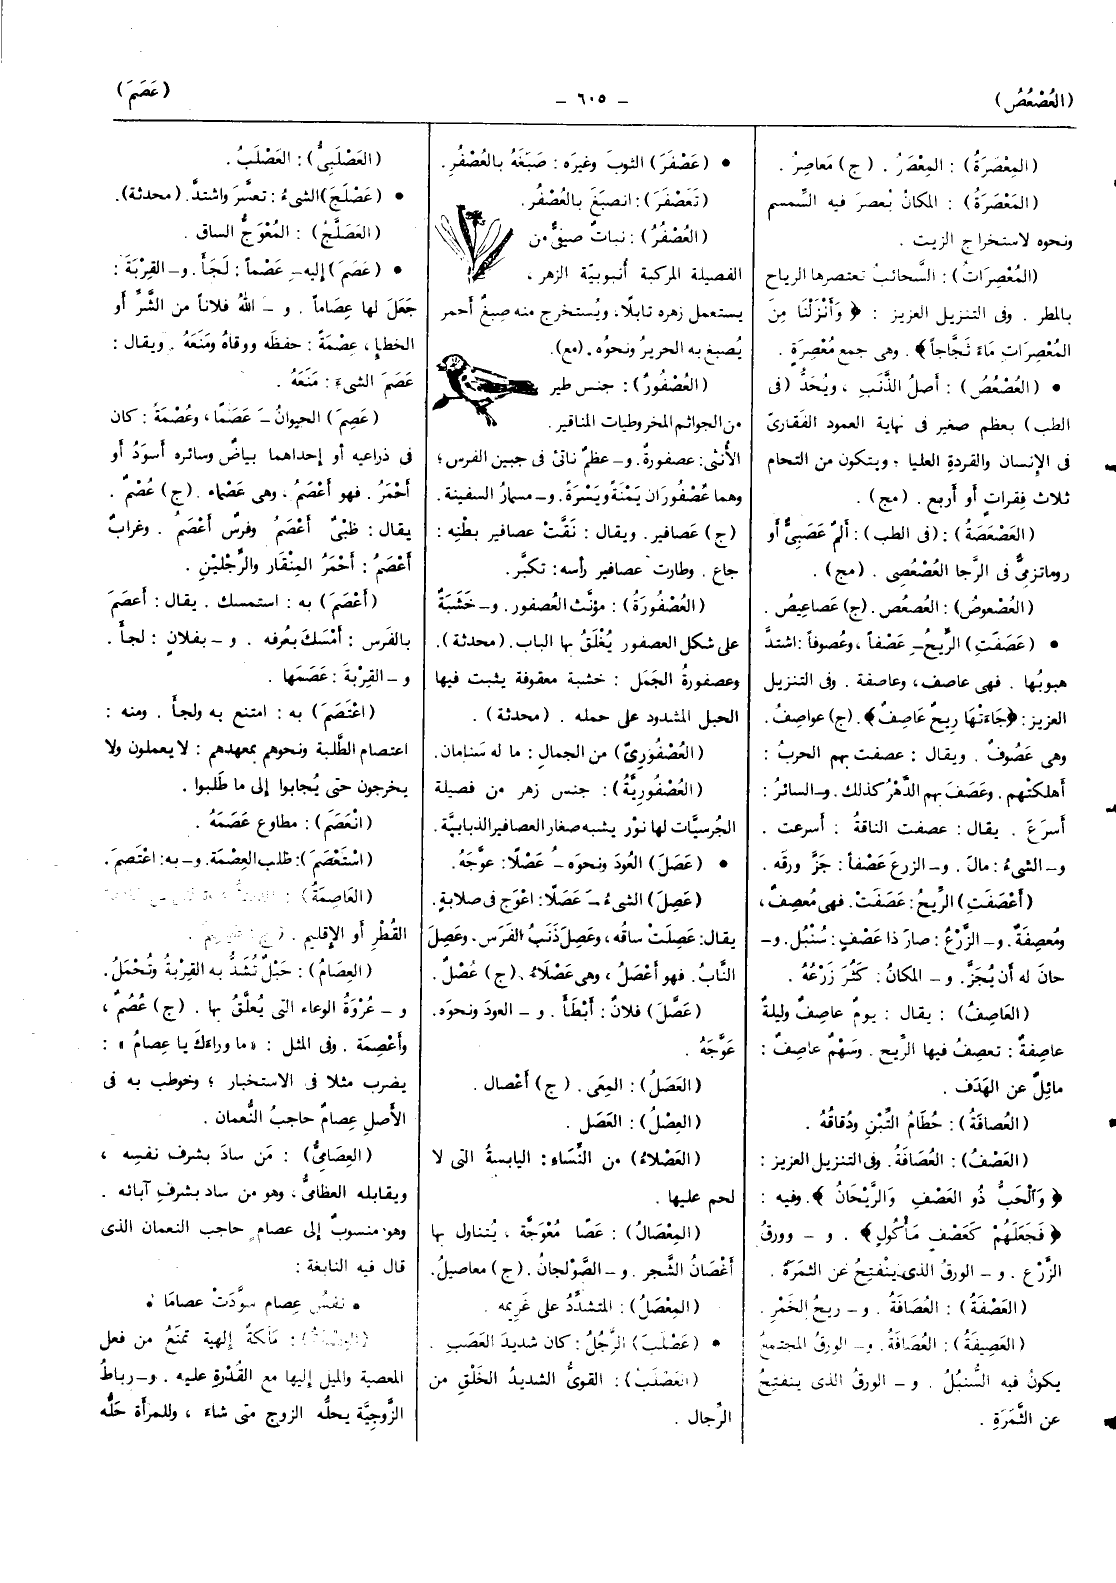 (العُصْعُصُ)
- ٦٠٥ -
(عَصَمَ)
(المِعْصَرَةُ) : المِعْصَرُ . (ج) مَعاصِرُ .
(المَعْصَرَةُ) : المكانُ يُعصرَ فيه السِّمسم
ونحوه لاستخراج الزيت .
(المُعْصِرَاتُ) : السَّحائبُ تعتصرها الرياح
بالمطر . وفى التنزيل العزيز : ﴿ وَأَنْزَلْنَا مِنَ
المُعْصِرَاتِ مَاءً ثَجَّاجاً ﴾ . وهى جمع مُعْصِرَةٍ .
• (العُصْعُصُ) : أصلُ الذَّنَبِ ، ويُحَدُّ (فى
الطب) بعظم صغير فى نهاية العمود الفَقارىّ
فى الإنسان والقردةِ العليا ؛ ويتكون من التحام
ثلاث فِقراتٍ أو أربع . (مج) .
(العَصْعَصَةُ) : (فى الطب) : ألمٌ عَصَبِىٌّ أو
روماتزمىٌّ فى الرَّجا العُصْعُصِى . (مج) .
(العُصْعوصُ) : العُصعُص . (ج) عَصاعِيصُ .
• (عَصَفَتِ) الرِّيحُ ـِ عَصْفاً ، وعُصوفاً : اشتدَّ
هبوبُها . فهى عاصف ، وعاصفة . وفى التنزيل
العزيز : ﴿جَاءَتْهَا رِيحٌ عَاصِفٌ﴾ . (ج) عواصِفُ .
وهى عَصُوفٌ . ويقال : عصفت بهم الحربُ :
أهلكتْهم . وعَصَفَ بهم الدَّهْرُ كذلك . و- السائرُ :
أسرَعَ . يقال : عصفت الناقةُ : أسرعت .
و- الشىءُ : مالَ . و- الزرعَ عَصْفاً : جَزَّ ورقَه .
(أعْصَفَتِ) الرِّيحُ : عَصَفَتْ. فهى مُعصِفٌ ،
ومُعصِفةٌ . و- الزَّرْعُ : صارَ ذا عَصْفٍ : سُنْبُلٍ . و-
حانَ له أن يُجَزَّ . و - المكانُ : كَثُرَ زَرْعُهُ .
(العَاصِفُ) : يقال : يومٌ عاصِفٌ وليلةٌ
عاصِفةٌ : تعصِفُ فيها الرِّيح . وسَهْمٌ عاصِفٌ :
مائِلٌ عن الهَدَف .
(العُصافَةُ) : حُطَامُ التِّبْنِ ودُقاقُهُ .
(العَصْفُ) : العُصَافَةُ . وفى التنزيل العزيز :
﴿ وَالْحَبُّ ذُو العَصْفِ وَالرَّيْحَانُ ﴾ . وفيه :
﴿ فَجَعَلَهُمْ كَعَصْفٍ مَأْكُولٍ ﴾ . و - وورقُ
الزَّرْع . و - الورقُ الذى ينْفتِحُ عن الثمَرَة .
(العَصْفَةُ) : العُصَافَةُ . و - ريحُ الخَمْرِ .
(العَصِيفَةُ) : العُصَافَةُ . و - الورقُ المجتمعُ
يكونُ فيه السُّنبُلُ . و - الورقُ الذى ينفتِحُ
عن الثَّمَرَةِ .
• (عَصْفَرَ) الثوبَ وغيرَه : صَبَغَهُ بالعُصْفُرِ .
(تَعَصْفَرَ) : انصبَغَ بالعُصْفُر .
(العُصْفُرُ) : نباتٌ صيفىٌّ من
الفصيلة المركبة أُنبوبيّة الزهر ،
يستعمل زهره تابلًا ، ويُستخرج منه صِبغٌ أحمر
يُصبغ به الحريرُ ونحوُه . (مع).
(العُصْفُورُ) : جنس طير
من الجواثم المخروطيات المناقير .
الأُنثى : عصفورةٌ . و- عظمٌ ناتئ فى جبين الفرس ؛
وهما عُصْفُورَانِ يَمْنَةً ويَسْرَةً . و- مسمارُ السفينة .
(ج) عَصافير . ويقال : نَقَّتْ عصافير بطْنِه :
جاع . وطارت عصافير رأسه : تكبَّر .
(العُصْفُورَةُ) : مؤنَّث العُصفور . و- خَشَبَةٌ
على شكل العصفور يُغْلَقُ بها الباب . (محدثة) .
وعصفورة الجَمَل : خشبة معقوفة يثبت فيها
الحبل المشدود على حمله . (محدثة) .
(العُصْفُورىّ) من الجمال : ما له سَنامان .
(العُصْفُوريَّةُ) : جنس زهر من فصيلة
الجُرسيَّات لها نوْر يشبه صغار العصافير الذبابيَّة .
• (عَصَلَ) العُودَ ونحوَه ـُ عَصْلًا : عوَّجَهُ .
(عَصِلَ) الشىءُ ـَ عَصَلًا : اعْوَجَ فى صلابةٍ .
يقال : عَصِلَتْ ساقُه ، وعَصِلَ ذَنَبُ الفرَس . وعَصِلَ
النَّابُ . فهو أعْصَلُ ، وهى عَصْلاءُ . (ج) عُصْلٌ .
(عَصَّلَ) فلانٌ : أَبْطَأَ . و - العودَ ونحوَه .
عَوَّجَهُ .
(العَصَلُ) : المِعَى . (ج) أعْصال .
(العِصْلُ) : العَصَل .
(العَصْلاءُ) من النِّسَاء : اليابسةُ التى لا
لحم عليها .
(المِعْصَالُ) : عَصًا مُعْوَجَّة ، يُتناول بها
أغْصَانُ الشَّجر . و- الصَّوْلجانُ . (ج) معاصيلُ .
(المِعْصَلُ) : المتشدَّدُ على غَرِيمِه .
• (عَصْلَبَ) الرَّجُلُ : كان شديدَ العَصَبِ .
(العَصْلَبُ) : القوىُّ الشديدُ الخَلْقِ من
الرِّجال .
(العَصْلَبِىُّ) : العَصْلَبُ .
• (عَصْلَجَ) الشىءُ : تعسَّرَ واشتدَّ . (محدثة) .
(العَصَلَّجُ) : المُعْوَجُّ الساق .
• (عَصَمَ) إليه ـِ عَصْماً : لَجَأَ . و- القِرْبَةَ :
جَعَلَ لها عِصَاماً . و - اللهُ فلاناً من الشَّرِّ أو
الخطإِ ، عِصْمَةً : حفظَه ووقاهُ ومَنَعَهُ . ويقال :
عَصَمَ الشىءَ : مَنَعَهُ .
(عَصِمَ) الحيوانُ ـَ عَصَمًا ، وعُصْمَةً : كان
فى ذراعيه أو إحداهما بياضٌ وسائره أسوَدُ أو
أحْمَرُ . فهو أعْصَمُ ، وهى عَصْماء . (ج) عُصْمٌ .
يقال : ظَبْىٌ أعْصَمُ وفرَسٌ أعْصَمُ . وغرابٌ
أعْصَمُ : أحْمَرُ المِنْقار والرِّجْلَيْنِ .
(أعْصَمَ) به : استمسك . يقال : أعصَمَ
بالفَرَس : أمْسَكَ بعُرفه . و - بفلانٍ : لجأَ .
و- القِرْبَةَ : عَصَمَها .
(اعْتَصَمَ) به : امتنع به ولجأَ . ومنه :
اعتصام الطَّلَبة ونحوهم بمعهدهم : لا يعملون ولا
يخرجون حتى يُجابوا إلى ما طَلبوا .
(انْعَصَمَ) : مطاوع عَصَمَهُ .
(اسْتَعْصَمَ) : طلب العِصْمة . و- به : اعْتَصَمَ .
(العَاصِمَةُ) :
القُطْرِ أو الإقليم .
(العِصَامُ) : حَبْلٌ تُشَدُّ به القِرْبةُ وتُحْمَلُ .
و - عُرْوَةُ الوعاء التى يُعلَّقُ بها . (ج) عُصُمٌ ،
وأعْصِمة . وفى المثل : «ما وراءَكَ يا عِصامُ» :
يضرب مثلا فى الاستخبار ؛ وخوطب به فى
الأصلِ عِصامٌ حاجبُ النُّعمان .
(العِصَامِىُّ) : مَن سادَ بشرف نفسِه ،
ويقابله العظامىُّ ، وهو من ساد بشرفِ آبائه .
وهو منسوبٌ إلى عصام حاجب النعمان الذى
قال فيه النابغة :
• نفسُ عصام سوَّدَتْ عصامَا •
(العِصْمَةُ) : مَلَكةٌ إلهية تمنَعُ من فعل
المعصية والميل إليها مع القُدْرةِ عليه . و- رباطُ
الزَّوجِيَّة يحلُّه الزوج متى شاءَ ، وللمرأة حَلُّه